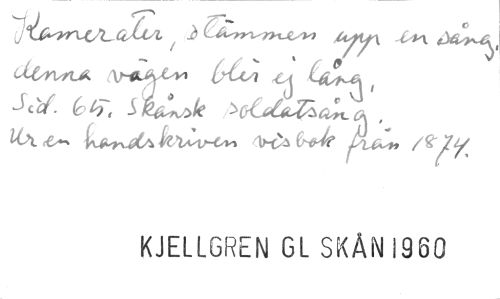 Kamerater, stämmen upp en sång,
denna vägen blir ej lång.
Sid. 65. Skånsk soldatsång.
Ur en handskriven visbok från 1874.
KJELLGREN GL SKÅN 1960